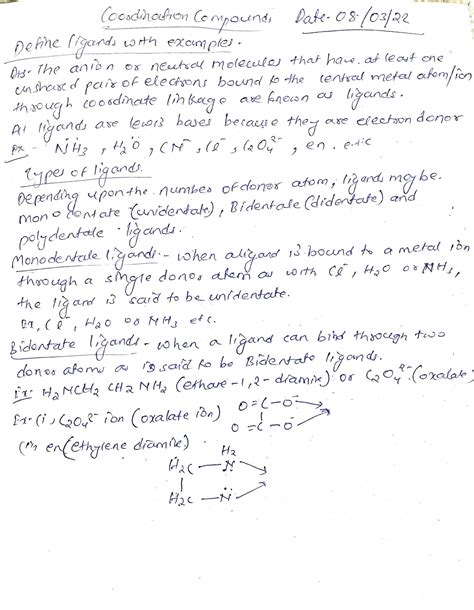 Coordination Compounds Date- 08/03/22
Define ligands with examples.
Ans- The anion or neutral molecules that have at least one
unshared pair of electrons bound to the central metal atom/ion
through coordinate linkage are known as ligands.
All ligands are lewis bases because they are electron donor
Ex - NH3, H2O, CN⁻, Cl⁻, C2O4²⁻, en. etc
Types of ligands.
Depending upon the number of donor atom, ligands may be.
monodentate (unidentate), Bidentate (didentate) and
polydentate ligands.
Monodentate ligands - when a ligand is bound to a metal ion
through a single donor atom as with Cl⁻, H2O or NH3,
the ligand is said to be unidentate.
Ex, Cl⁻, H2O or NH3 etc.
Bidentate ligands - when a ligand can bind through two
donor atoms as is said to be Bidentate ligands.
Ex: H2NCH2CH2NH2 (ethane-1,2-diamine) or C2O4²⁻ (oxalate)
Ex-(i) C2O4²⁻ ion (oxalate ion) O=C-O⁻
O=C-O⁻
en (ethylene diamine) H2
H2C-N̈
H2C-N̈